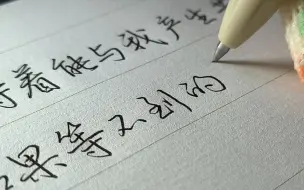 着能与我产生
果等不到的